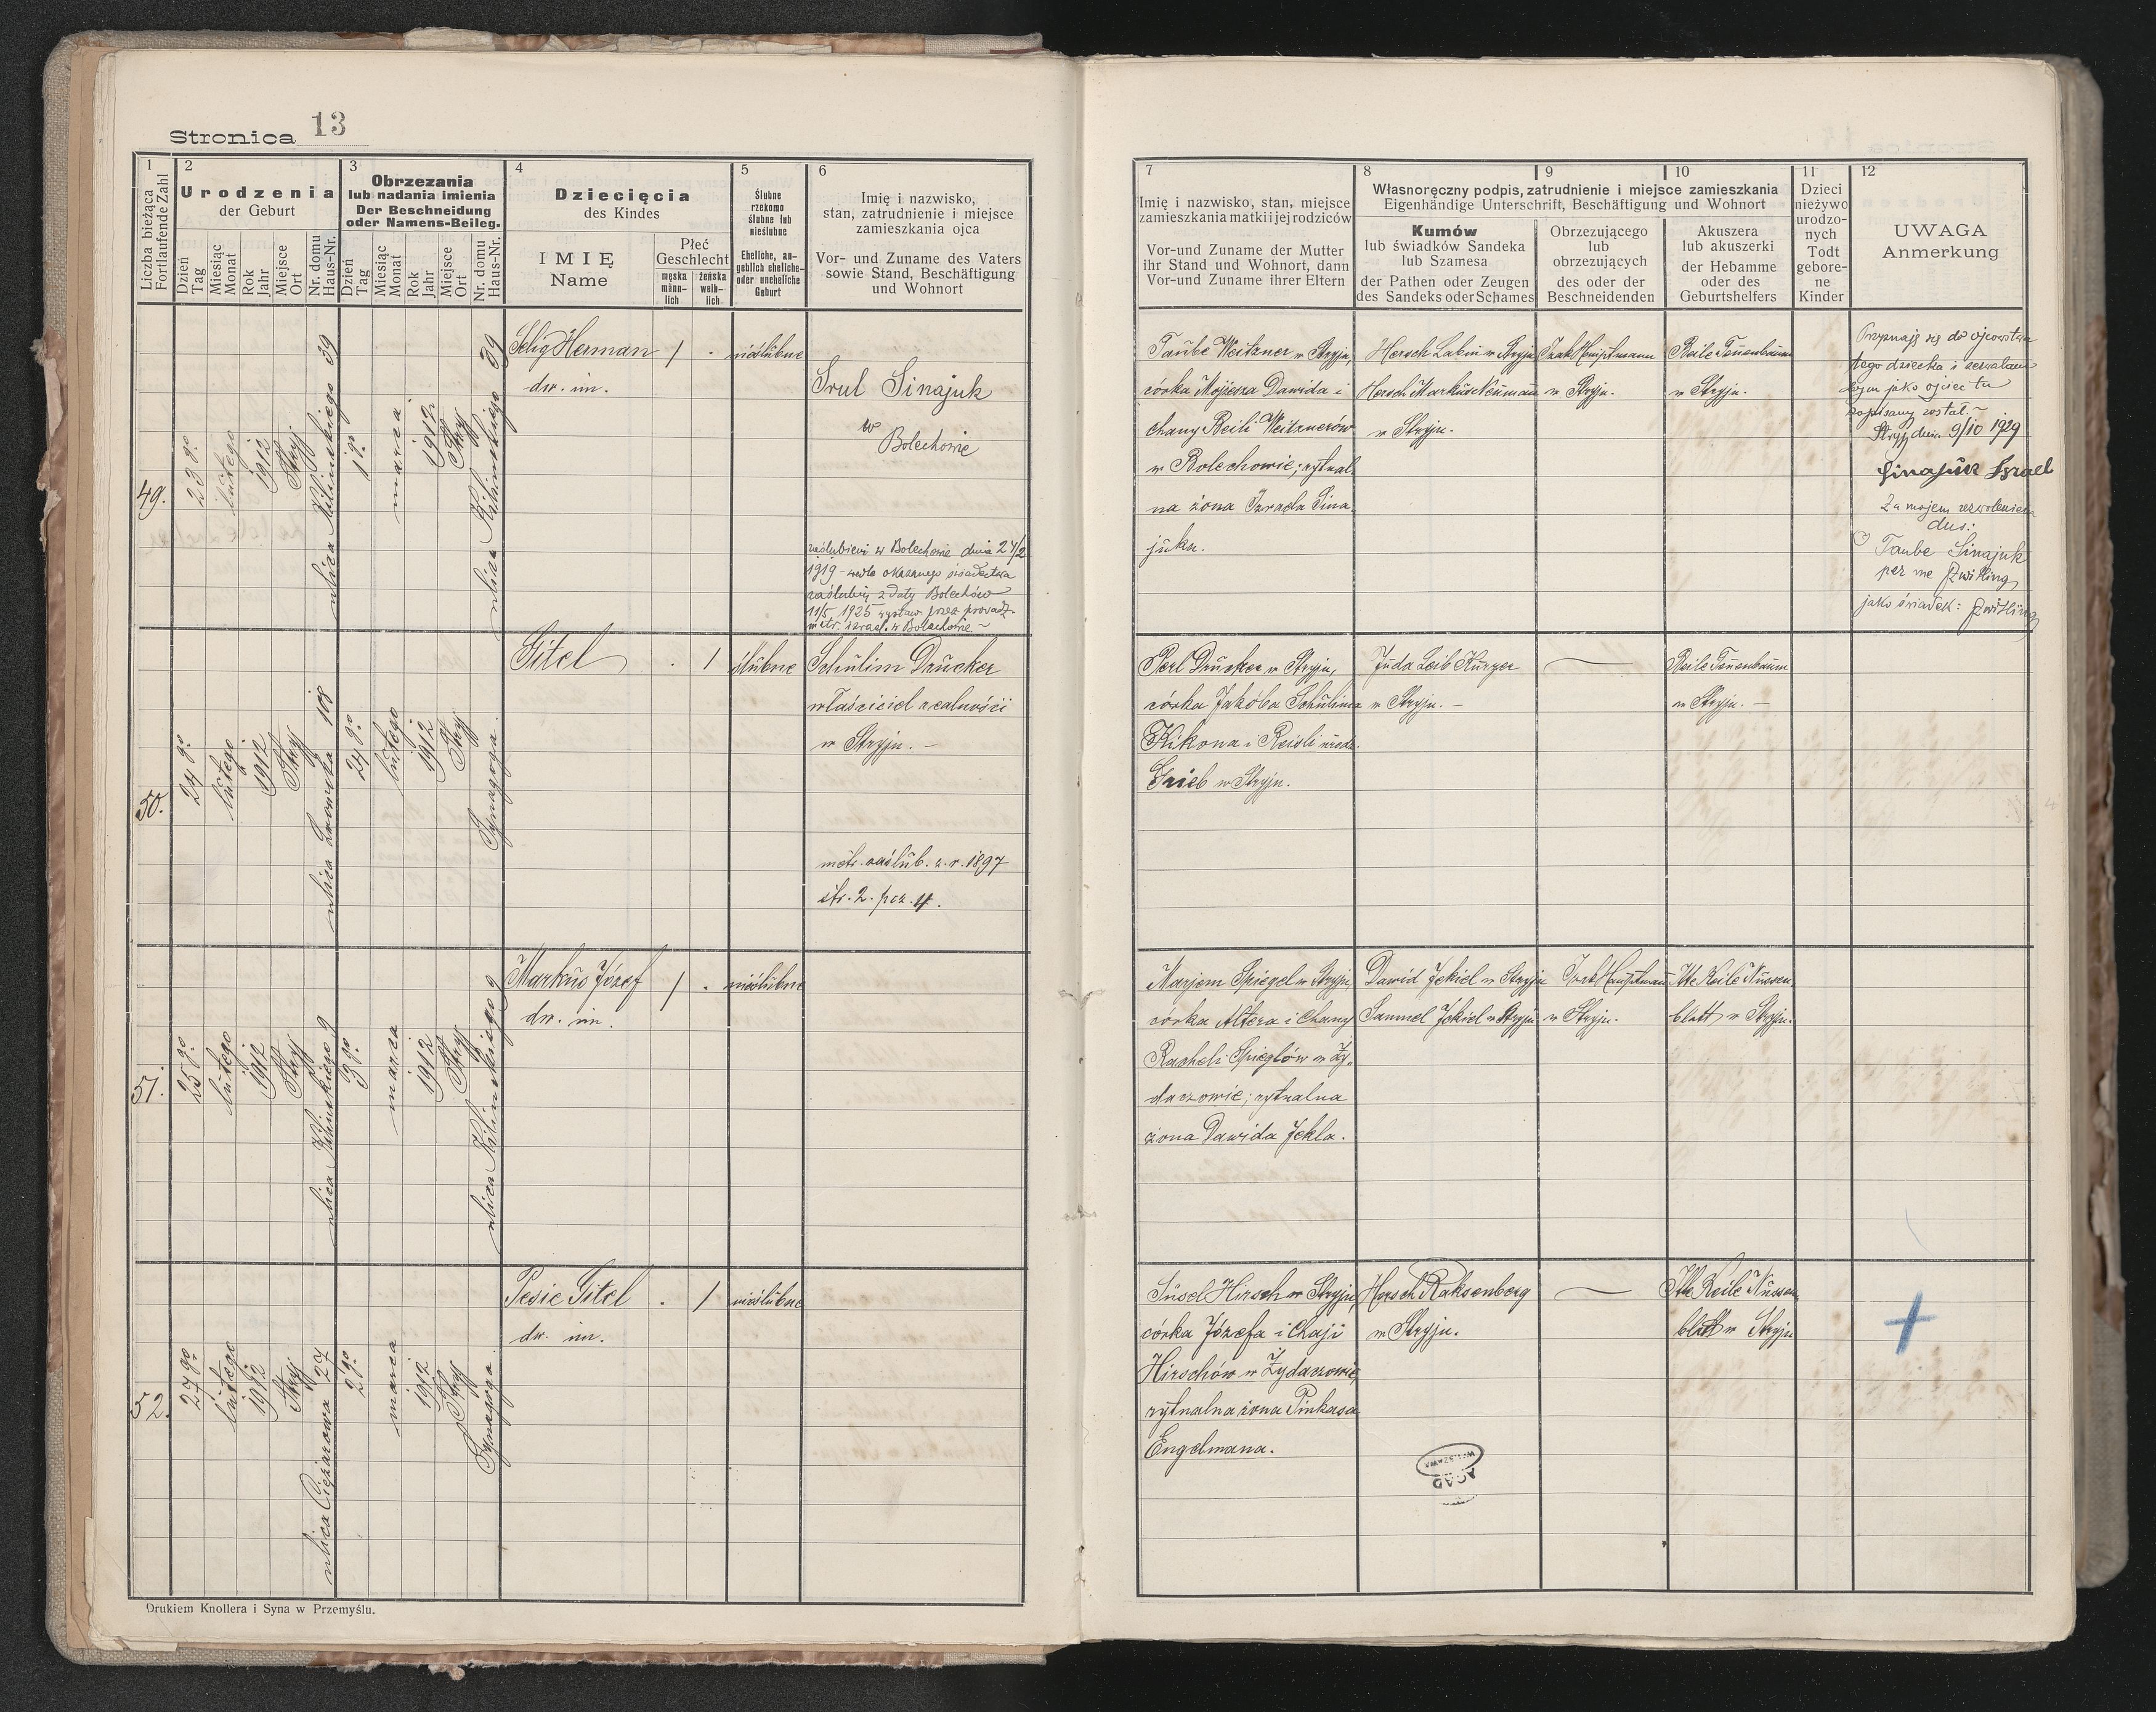 Stronica 13
1
Liczba bieżąca
Fortlaufende Zahl
2
Urodzenia
der Geburt
Dzień
Tag
Miesiąc
Monat
Rok
Jahr
Miejsce
Ort
Nr. domu
Haus-Nr.
3
Obrzezania
lub nadania imienia
Der Beschneidung
oder Namens-Beileg.
Dzień
Tag
Miesiąc
Monat
Rok
Jahr
Miejsce
Ort
Nr. domu
Haus-Nr.
4
Dziecięcia
des Kindes
IMIĘ
Name
Płeć
Geschlecht
męska
männ-
lich
żeńska
weib-
lich
5
Ślubne
rzekomo
ślubne lub
nieślubne
Eheliche, an-
geblich eheliche-
oder uneheliche
Geburt
6
Imię i nazwisko,
stan, zatrudnienie i miejsce
zamieszkania ojca
Vor- und Zuname des Vaters
sowie Stand, Beschäftigung
und Wohnort
7
Imię i nazwisko, stan, miejsce
zamieszkania matki i jej rodziców
Vor-und Zuname der Mutter
ihr Stand und Wohnort, dann
Vor-und Zuname ihrer Eltern
8
9
10
Własnoręczny podpis, zatrudnienie i miejsce zamieszkania
Eigenhändige Unterschrift, Beschäftigung und Wohnort
Kumów
lub świadków Sandeka
lub Szamesa
der Pathen oder Zeugen
des Sandeks oder Schames
Obrzezującego
lub
obrzezujących
des oder der
Beschneidenden
Akuszera
lub akuszerki
der Hebamme
oder des
Geburtshelfers
11
Dzieci
nieżywo
urodzo-
nych
Todt
gebore-
ne
Kinder
12
UWAGA
Anmerkung
49.
23go
lutego
1912
Stryj
ulica Kilińskiego 39
1go
marca
1912
Stryj
ulica Kilińskiego 39
Selig Herman
dw. im.
/ .
nieślubne
Srul Sinajuk
w
Bolechowie
zaślubieni w Bolechowie dnia 24/2
1919 - wedle okazanego świadectwa
zaślubin z daty Bolechów
11/5 1925 wystaw. przez prowadz.
metr. izrael. w Bolechowie -
Taube Weitzner w Stryju,
córka Mojżesza Dawida i
Chany Beili Weitznerów
w Bolechowie; rytual
na żona Izraela Sina
juka.
Hersch Lakin w Stryju
Hersch Markus Neumann
w Stryju.
Izak Hauptmann
w Stryju.
Reile Tenenbaum
w Stryju.
Przyznaję się do ojcostwa
tego dziecka i zezwalam
bym jako ojciec tu
zapisany został. -
Stryj dnia 9/10 1929
Sinajuk Israel
Za mojem zezwoleniem
dus:
Taube Sinajuk
per me Zwilling
jako świadek: Zwilling
50.
24go
lutego
1912
Stryj
ulica Lwowska 118
29go
lutego
1912
Stryj
Synagoga.
Gitel
. /
ślubne
Schulim Drucker
właściciel realności
w Stryju. -
metr. zaślub. z. r. 1897
str. 2. poz. 4.
Perl Drucker w Stryju,
córka Jakóba Schulima
Kikona i Reisli urodz.
Grieb w Stryju.
Juda Leib Kurzer
w Stryju. -
—
Reile Tenenbaum
w Stryju. -
51.
25go
lutego
1912
Stryj
ulica Kilińskiego 9
3go
marca
1912
Stryj
ulica Kilińskiego 9
Markus Józef
dw. im.
/ .
nieślubne
Marjem Spiegel w Stryju,
córka Altera i Chany
Racheli Spieglów w Ży-
daczowie; rytualna
żona Dawida Jekla.
Dawid Jekiel w Stryju
Samuel Jekiel w Stryju
Izak Hauptmann
w Stryju.
Itte Reile Nussen
blatt w Stryju.
52.
27go
lutego
1912
Stryj
ulica Ciężarowa 27
2go
marca
1912
Stryj
Synagoga
Pesie Gitel
dw. im.
. /
nieślubne
Süsel Hirsch w Stryju,
córka Józefa i Chaji
Hirschów w Żydaczowie,
rytualna żona Pinkasa
Engelmana.
Hersch Raksenberg
w Stryju.
—
Itte Reile Nussen
blatt w Stryju
AGAD
WARSZAWA
Drukiem Knollera i Syna w Przemyślu.